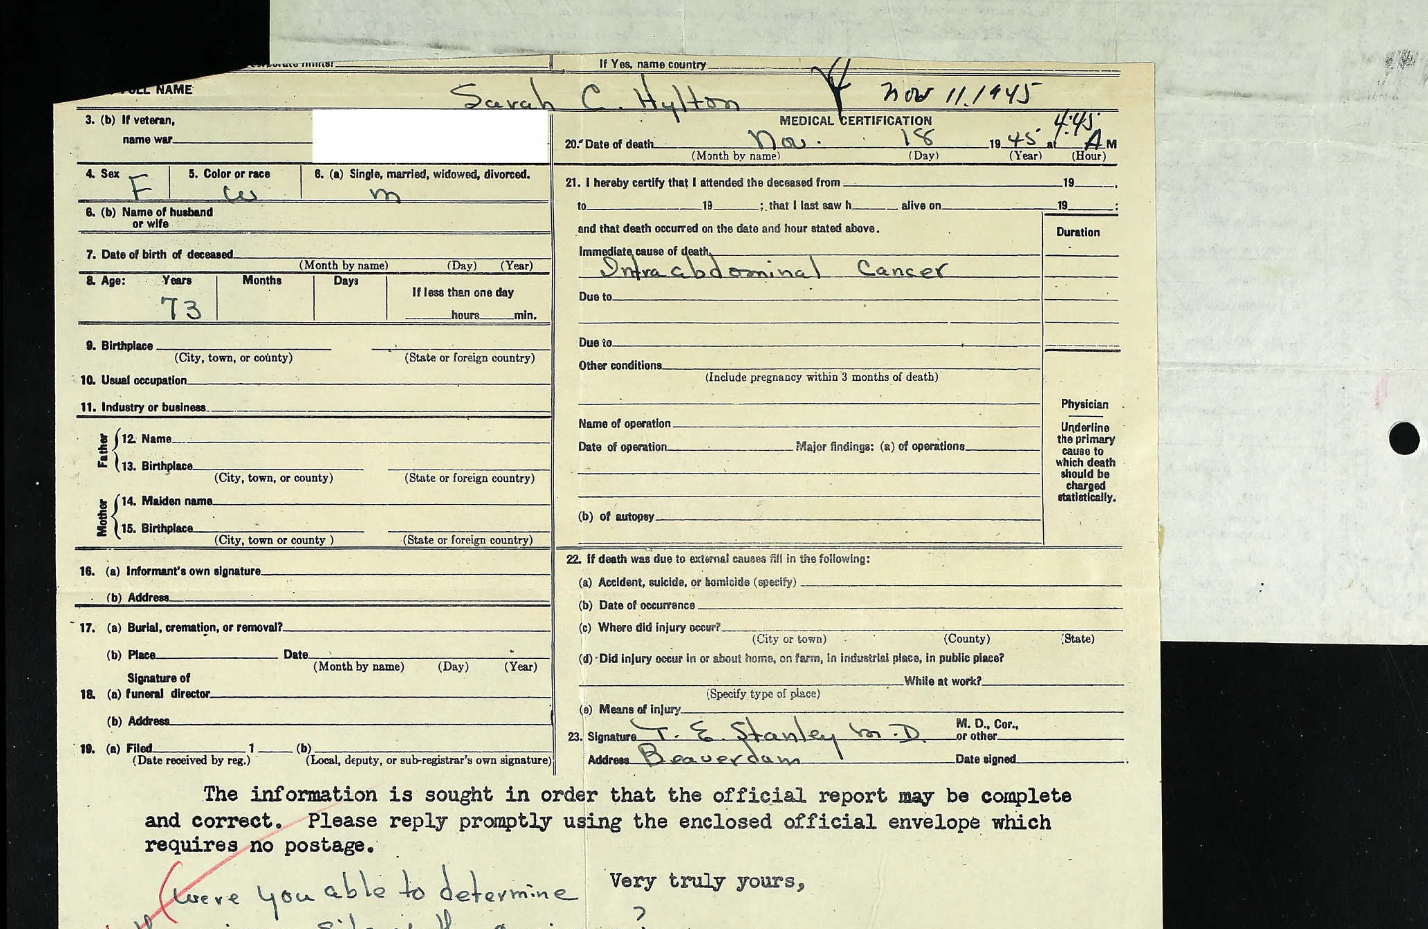 If Yes, name country
FULL NAME Sarah C. Hylton Nov 11. 1945
3. (b) If veteran,
name war
MEDICAL CERTIFICATION 4:45
20. Date of death Nov. 18 1945 at A M
(Month by name) (Day) (Year) (Hour)
4. Sex F 5. Color or race W 6. (a) Single, married, widowed, divorced. M
6. (b) Name of husband
or wife
7. Date of birth of deceased
(Month by name) (Day) (Year)
8. Age: Years Months Days If less than one day
73 hours min.
9. Birthplace
(City, town, or county) (State or foreign country)
10. Usual occupation
11. Industry or business
Father
12. Name
13. Birthplace
(City, town, or county) (State or foreign country)
Mother
14. Maiden name
15. Birthplace
(City, town or county ) (State or foreign country)
16. (a) Informant's own signature
(b) Address
17. (a) Burial, cremation, or removal?
(b) Place Date
(Month by name) (Day) (Year)
Signature of
18. (a) funeral director
(b) Address
19. (a) Filed 1 (b)
(Date received by reg.) (Local, deputy, or sub-registrar's own signature)
21. I hereby certify that I attended the deceased from 19 ,
to 19 ; that I last saw h alive on 19 ;
and that death occurred on the date and hour stated above.
Duration
Immediate cause of death
Intraabdominal Cancer
Due to
Due to
Other conditions
(Include pregnancy within 3 months of death)
Name of operation
Date of operation Major findings: (a) of operations
(b) of autopsy
Physician
Underline
the primary
cause to
which death
should be
charged
statistically.
22. If death was due to external causes fill in the following:
(a) Accident, suicide, or homicide (specify)
(b) Date of occurrence
(c) Where did injury occur?
(City or town) (County) (State)
(d) Did injury occur in or about home, on farm, in industrial place, in public place?
While at work?
(Specify type of place)
(e) Means of injury
23. Signature T. E. Stanley M.D. M. D., Cor.,
or other
Address Beaverdam Date signed
The information is sought in order that the official report may be complete
and correct. Please reply promptly using the enclosed official envelope which
requires no postage.
Very truly yours,
(Were you able to determine
?